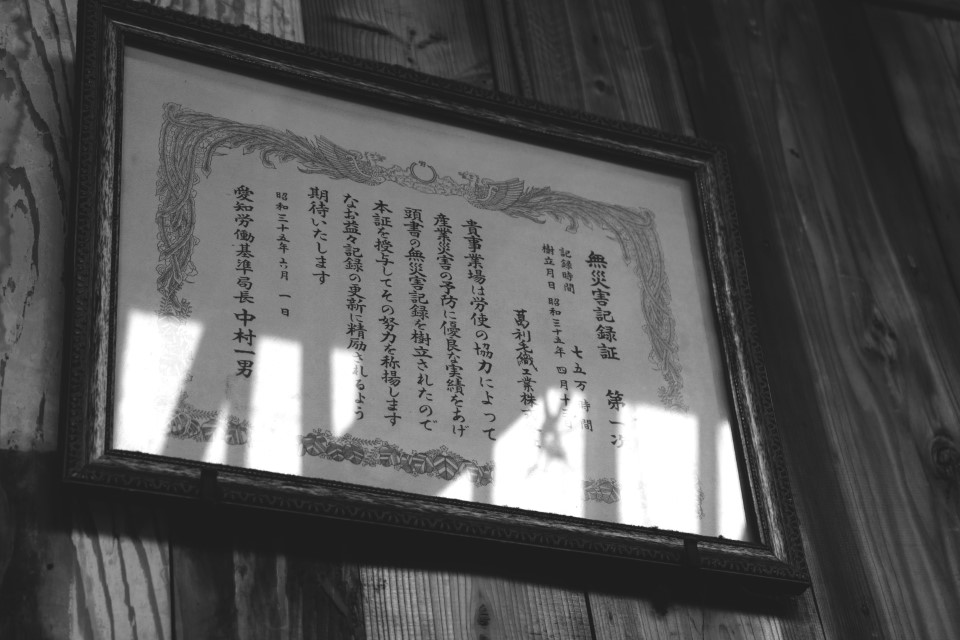 無災害記録証 第一
記録時間 七五万時間
樹立月日 昭和三十五年四月十
萬利毛織工業株
貴事業場は労使の協力によって
産業災害の予防に優良な実績をあげ
頭書の無災害記録を樹立されたので
本証を授与してその努力を称揚します
なお益々記録の更新に精励されるよう
期待いたします
昭和三十五年六月一日
愛知労働基準局長 中村一男